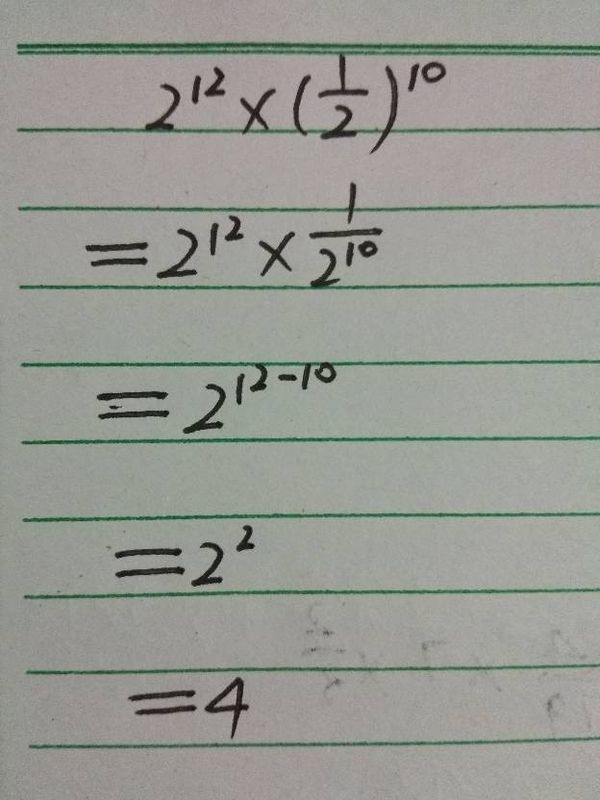 2¹² × (1/2)¹⁰
= 2¹² × 1/2¹⁰
= 2¹²⁻¹⁰
= 2²
= 4